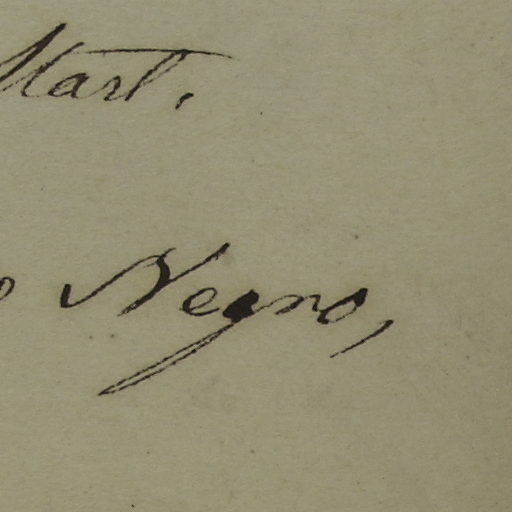 Start,
o Negro,